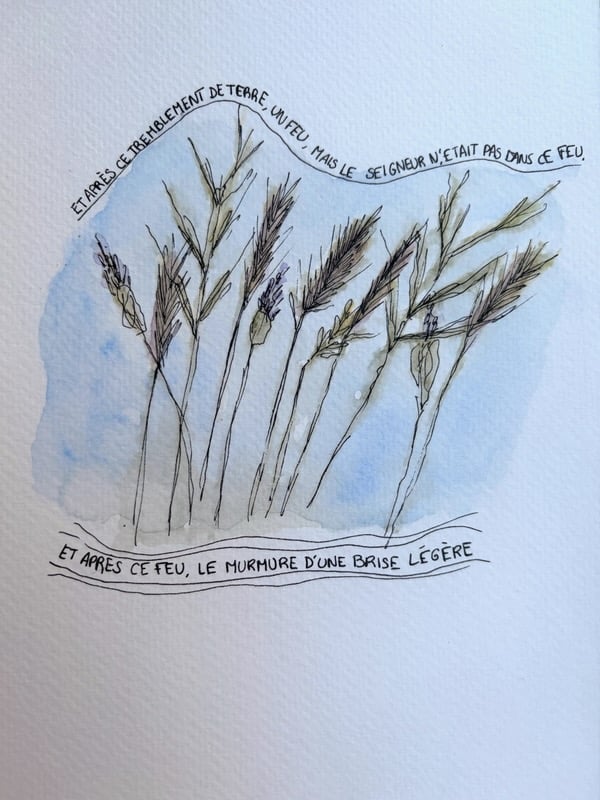 ET APRÈS CE TREMBLEMENT DE TERRE, UN FEU, MAIS LE SEIGNEUR N'ÉTAIT PAS DANS CE FEU.
ET APRÈS CE FEU, LE MURMURE D'UNE BRISE LÉGÈRE